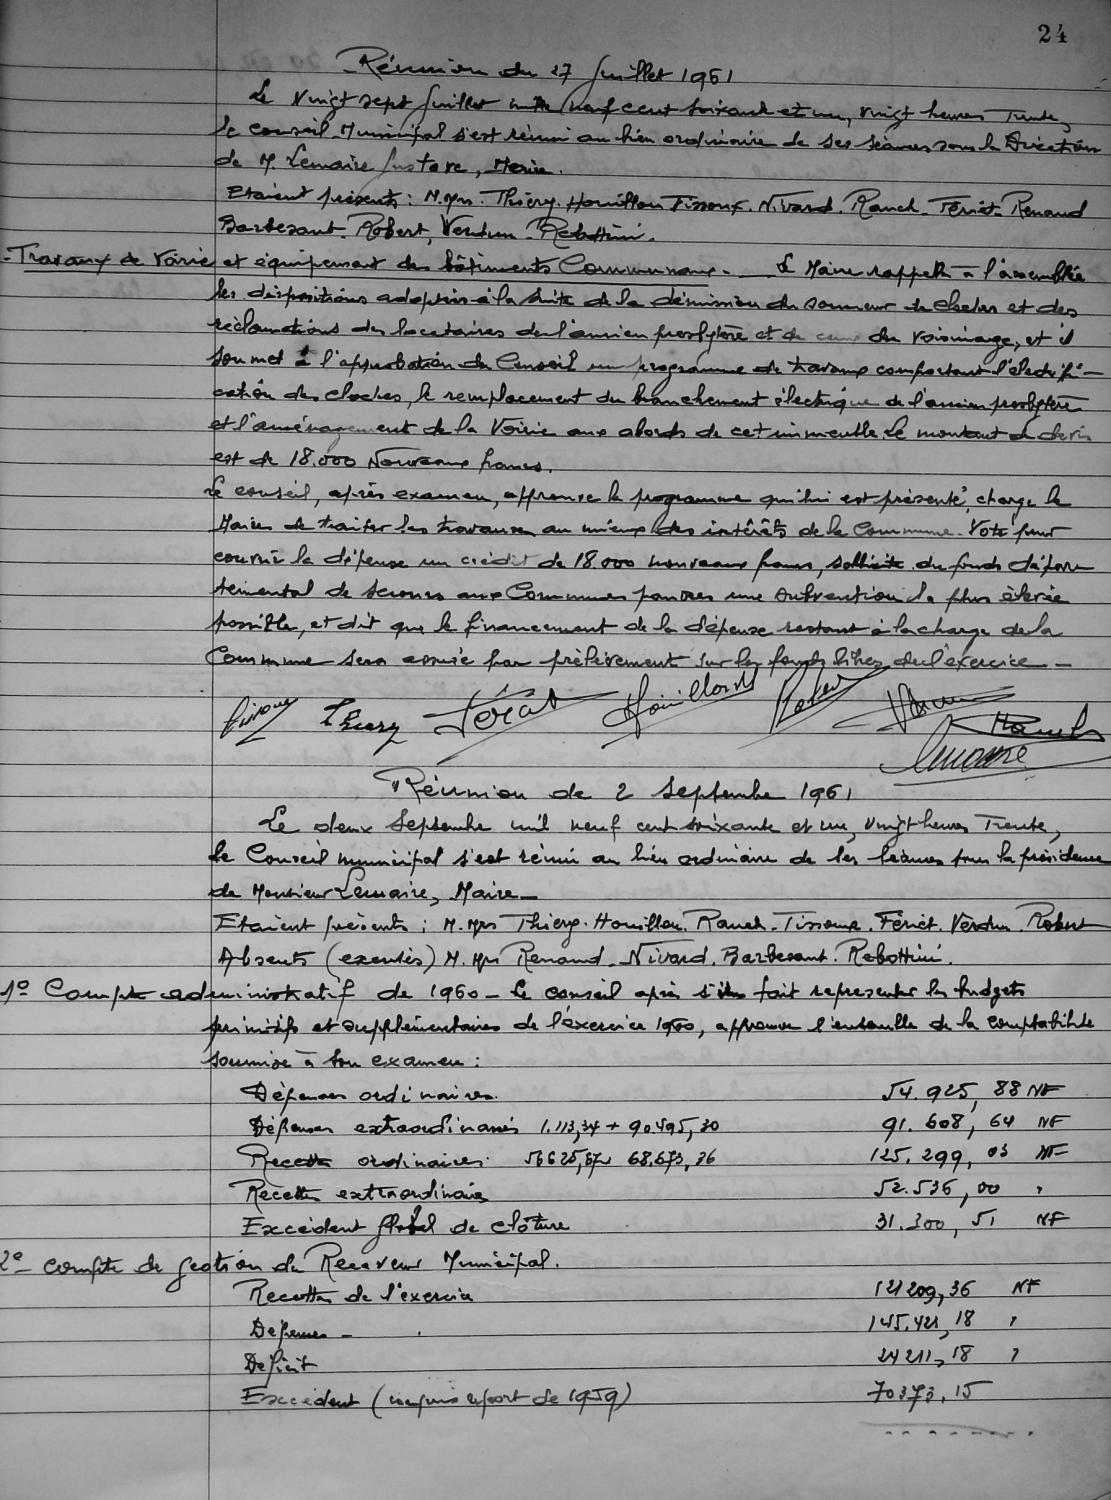 24
Réunion du 27 Juillet 1961
Le Vingt sept Juillet mille neuf cent soixante et un, vingt heures Trente,
le conseil Municipal s'est réuni au lieu ordinaire de ses séances sous la Direction
de M. Lemaire Gustave, Maire.
Etaient présents : M.Mrs. Thiery. Houillon Tissoux. Nivard. Rauch. Fériet. Renaud
Barbesant. Robert, Verdun. Rebottini.
- Travaux de Voirie et équipement des bâtiments Communaux. - Le Maire rappelle à l'assemblée
les dispositions adoptées à la suite de la démission du sonneur de cloches et des
réclamations des locataires de l'ancien presbytère et de ceux du voisinage, et il
soumet à l'approbation du Conseil un programme de travaux comportant l'électrifi-
cation des cloches, le remplacement du branchement électrique de l'ancien presbytère
et l'aménagement de la Voirie aux abords de cet immeuble. Le montant du devis
est de 18.000 Nouveaux francs.
Le conseil, après examen, approuve le programme qui lui est présenté, charge le
Maire de traiter les travaux au mieux des intérêts de la Commune. Vote pour
couvrir la dépense un crédit de 18.000 nouveaux francs, sollicite du fonds dépar
temental de secours aux Communes pauvres une subvention la plus élevée
possible, et dit que le financement de la dépense restant à la charge de la
Commune sera assurée par prélèvement sur les fonds libres de l'exercice -
Tissoux Thiery Fériet Houillon Robert Rauch
Lemaire
Réunion de 2 Septembre 1961
Le deux Septembre mil neuf cent soixante et un, vingt heures Trente,
le Conseil municipal s'est réuni au lieu ordinaire de ses séances sous la présidence
de Monsieur Lemaire, Maire -
Etaient présents : M.Mrs Thiery. Houillon. Rauch. Tissoux. Fériet. Verdun. Robert
Absents (excusés) M.Mrs Renaud. Nivard. Barbesant. Rebottini.
1° Compte administratif de 1960 - Le conseil après s'être fait représenter les budgets
primitifs et supplémentaires de l'exercice 1960, approuve l'ensemble de la comptabilité
soumise à son examen :
Dépenses ordinaires. 54.925, 88 NF
Dépenses extraordinaires 1.113,34 + 90.495,30 91.608, 64 NF
Recettes ordinaires. 56625,67 68.673,36 125.299, 03 NF
Recettes extraordinaires 52.536,00 "
Excédent global de clôture 31.300, 51 NF
2° - compte de gestion du Receveur Municipal.
Recettes de l'exercice 121209,36 NF
Dépenses - 145.421,18 "
Déficit 24211,18 "
Excédent (compris report de 1959) 70373,15